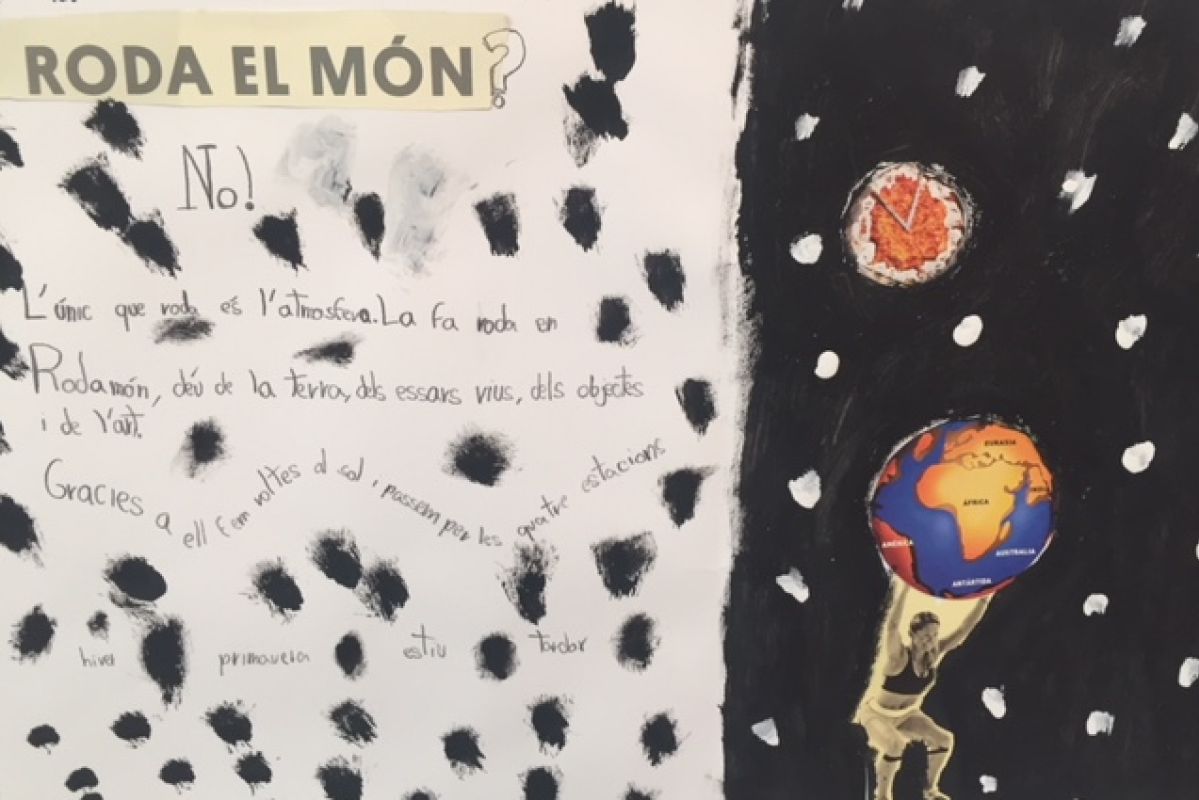 RODA EL MÓN?
No!
L'únic que roda és l'atmosfera. La fa roda en
Rodamón, déu de la terra, dels essars vius, dels objectes
i de l'art.
Gracies a ell fem voltes al sol i passem per les quatre estacions
hiver primavera estiu tardor
EURASIA
ÁFRICA
AMÉRICA
AUSTRALIA
ANTÁRTIDA